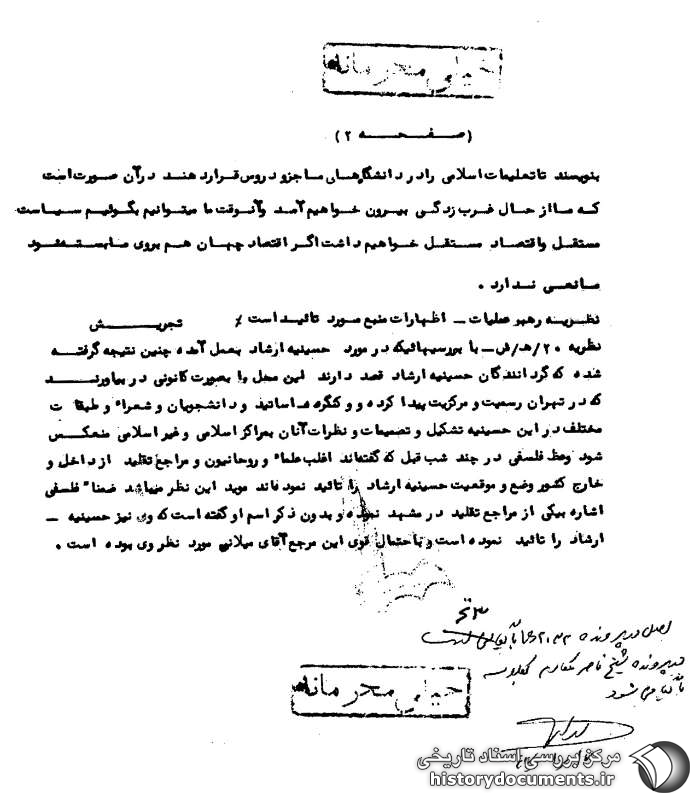 خیلی محرمانه
(صفحه ۲)
بنویسند تا تعلیمات اسلامی را در دانشگاههای ما جزو دروس قرار دهند در آن صورت است
که ما از حال غرب زدگی بیرون خواهیم آمد و آنوقت ما میتوانیم بگوئیم سیاست
مستقل و اقتصاد مستقل خواهیم داشت اگر اقتصاد جهان هم بروی ما بسته شود
مانعی ندارد .
نظریه رهبر عملیات ــ اظهارات منبع مورد تائید است٪ تجریش
نظریه ۲۰/ﻫ/ش ــ با بررسیهائیکه در مورد حسینیه ارشاد بعمل آمده چنین نتیجه گرفته
شده که گردانندگان حسینیه ارشاد قصد دارند این محل را بصورت کانونی در بیاورند
که در تهران رسمیت و مرکزیت پیدا کرده و کنگره اساتید و دانشجویان و شعراء و طبقات
مختلف در این حسینیه تشکیل و تصمیمات و نظرات آنان بمراکز اسلامی و غیر اسلامی منعکس
شود وعظ فلسفی در چند شب قبل که گفته‌اند اغلب علماء و روحانیون و مراجع تقلید از داخل و
خارج کشور وضع و موقعیت حسینیه ارشاد را تائید نموده‌اند موید این نظر میباشد ضمنا" فلسفی
اشاره بیکی از مراجع تقلید در مشهد نموده و بدون ذکر اسم او گفته است که وی نیز حسینیه ــ
ارشاد را تائید نموده است و با حتمال قوی این مرجع آقای میلانی مورد نظر وی بوده است .
اصل در پرونده
در پرونده شیخ ناصر مکارم
می شود
خیلی محرمانه
مرکز بررسی اسناد تاریخی
historydocuments.ir